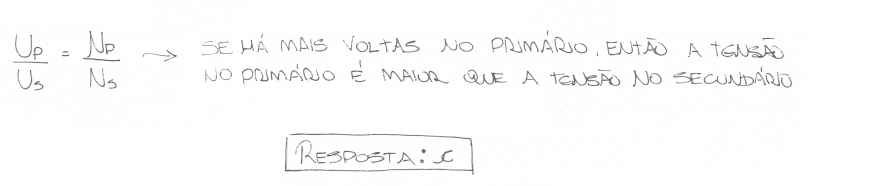 Up/Us = Np/Ns → SE HÁ MAIS VOLTAS NO PRIMÁRIO, ENTÃO A TENSÃO
NO PRIMÁRIO É MAIOR QUE A TENSÃO NO SECUNDÁRIO
RESPOSTA: C